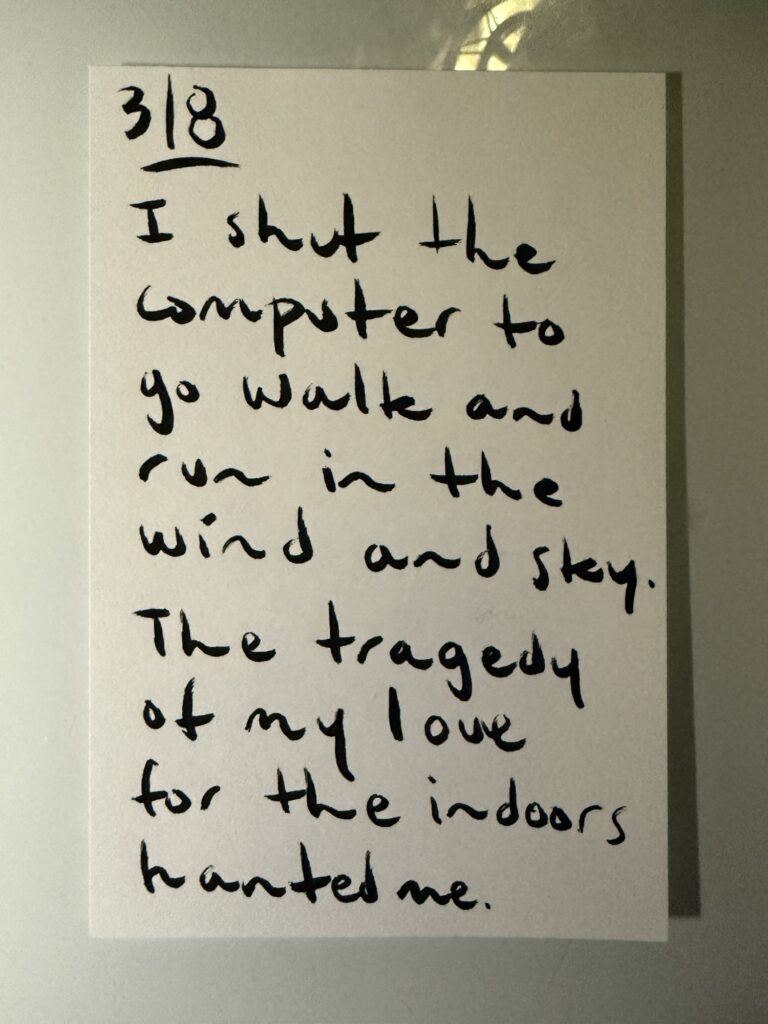 3|8
I shut the
computer to
go walk and
run in the
wind and sky.
The tragedy
of my love
for the indoors
hanted me.